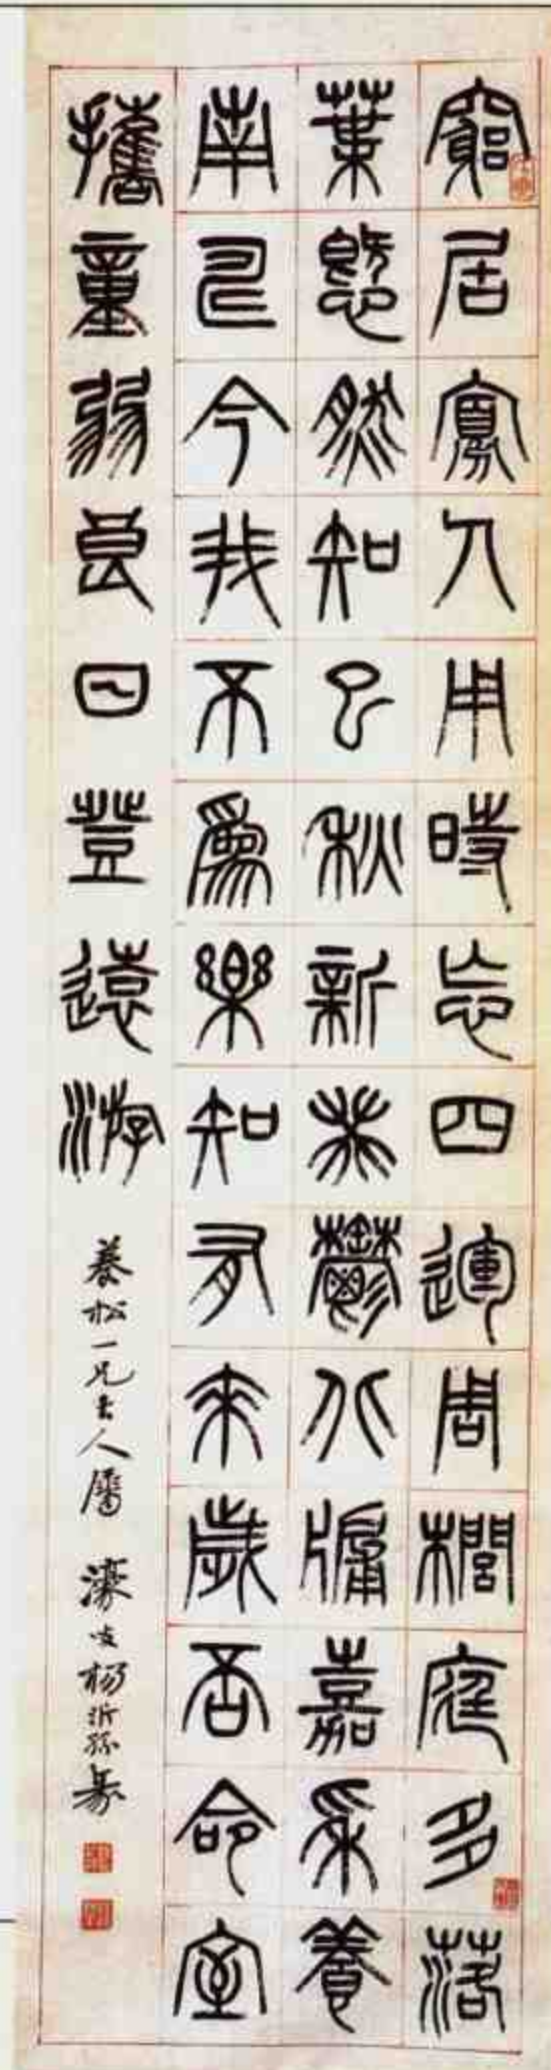 窮居寡人用時忘四運周櫚庭多落
葉慨然知已秋新葵鬱北牖嘉穗養
南疇今我不爲樂知有來歲否命室
攜童弱良日登遠游
養松一兄大人屬 濠叟楊沂孫篆